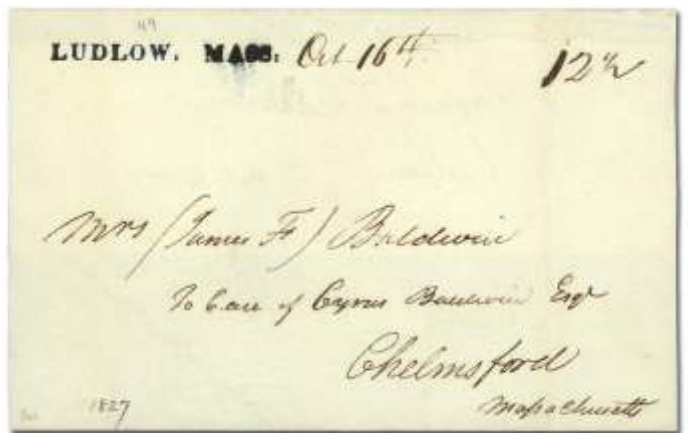 49
LUDLOW. MASS. Oct 16th 12½
Mrs (James F) Baldwin
To Care of Cyrus Baldwin Esqr
Chelmsford
Massachusetts
1827